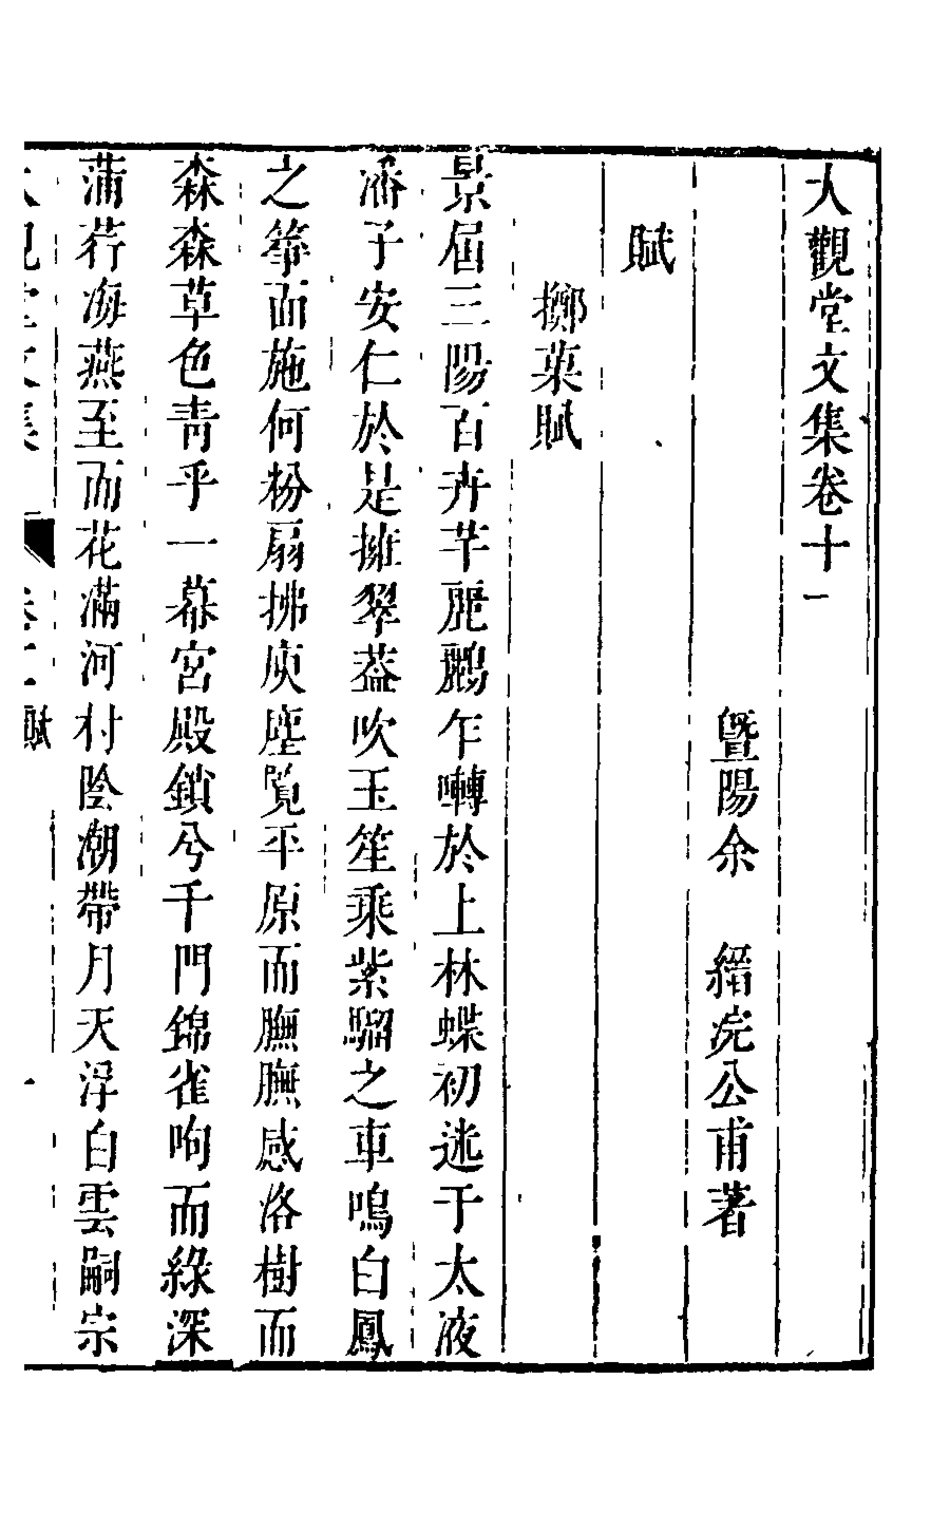 大觀堂文集卷十一
暨陽余　縉浣公甫著
賦
擲菓賦
景屆三陽百卉芊麗鸝乍囀於上林蝶初迷于太液
潘子安仁於是擁翠葢吹玉笙乘紫騮之車鳴白鳳
之箏而施何粉扇拂庾塵覽平原而膴膴感洛樹而
森森草色靑乎一幕宮殿鎖兮千門錦雀呴而綠深
蒲荇海燕至而花滿河村陰潮帶月天浮白雲嗣宗
大觀堂文集　卷十一　賦　一